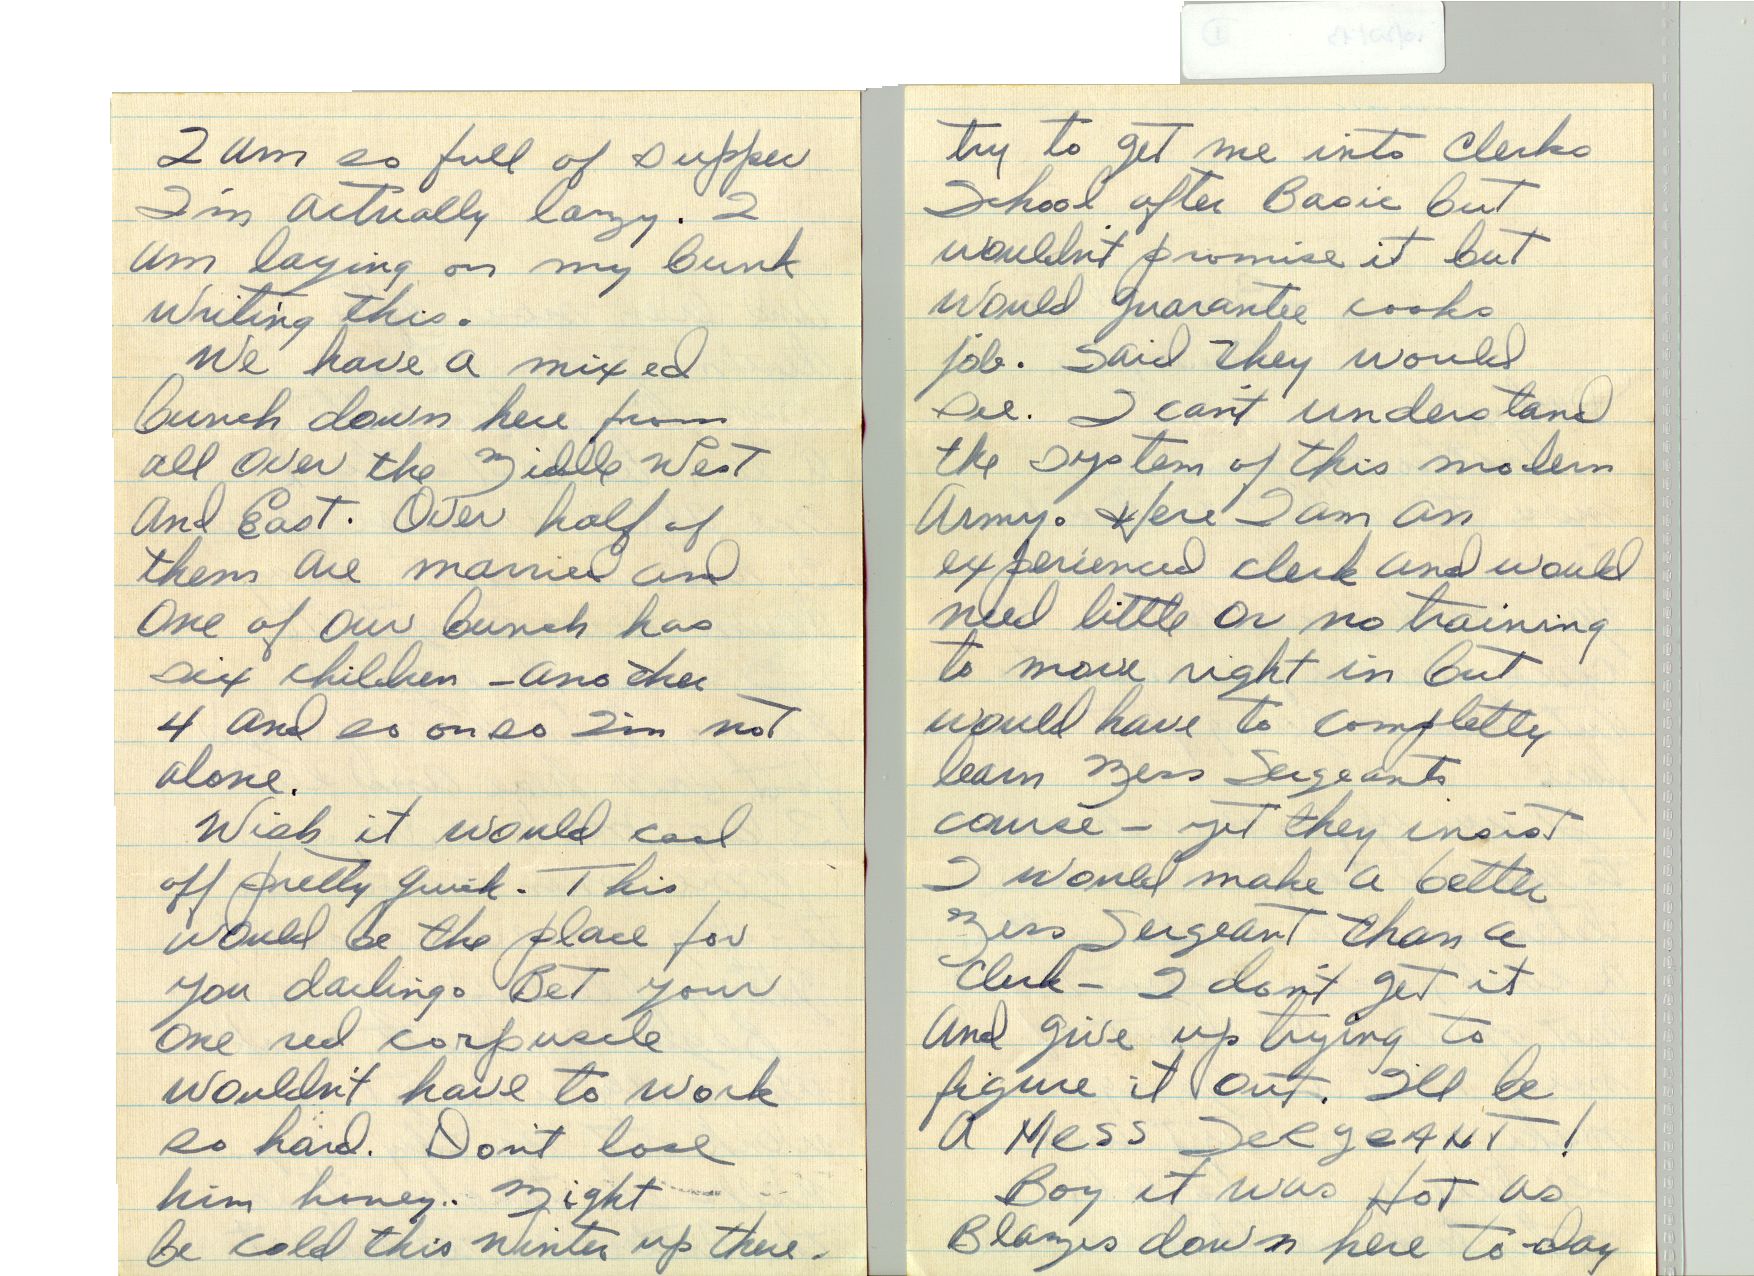 I am so full of supper
I'm actually lazy. I
am laying on my bunk
writing this.
We have a mixed
bunch down here from
all over the Middle West
and East. Over half of
them are married and
one of our bunch has
six children - another
4 and so on so I'm not
alone.
Wish it would cool
off pretty quick. This
would be the place for
you darling. Bet your
one red corpuscle
wouldn't have to work
so hard. Don't lose
him honey.. Might
be cold this winter up there.
try to get me into Clerks
School after Basic but
wouldn't promise it but
would guarantee cooks
job. Said they would
see. I can't understand
the system of this modern
Army. Here I am an
experienced clerk and would
need little or no training
to move right in but
would have to completly
learn Mess Sergeants
course - yet they insist
I would make a better
Mess Sergeant than a
Clerk - I don't get it
and give up trying to
figure it out. I'll be
A MESS SERGEANT!
Boy it was HOT as
Blazes down here to-day